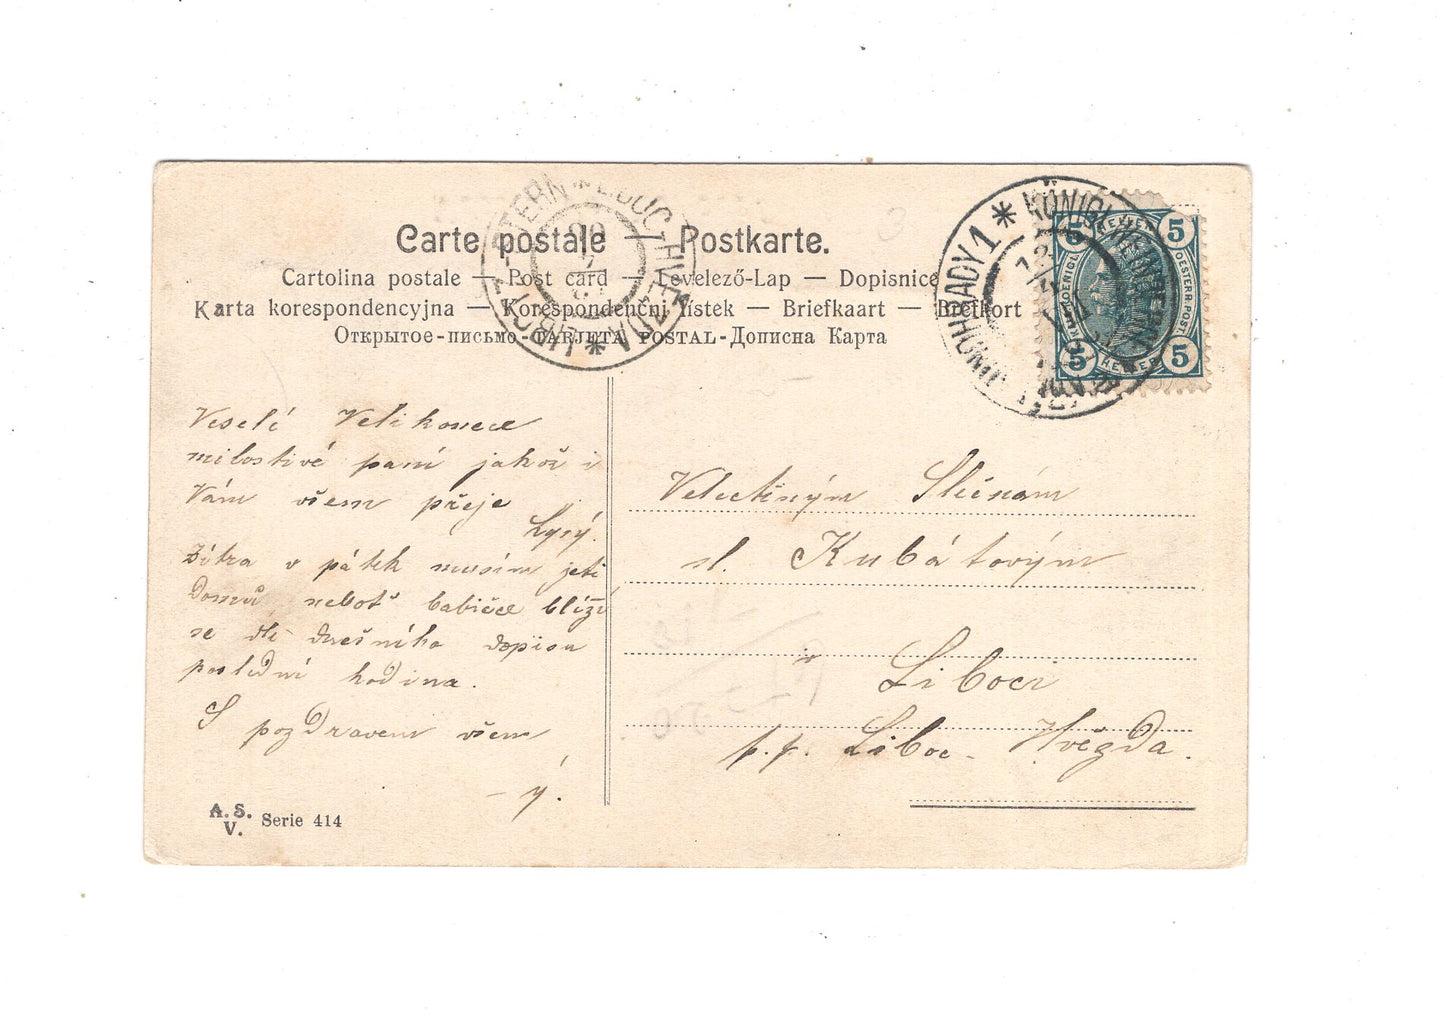 Carte postale — Postkarte.
Cartolina postale — Post card — Levelező-Lap — Dopisnice
Karta korespondencyjna — Korespondenčni listek — Briefkaart — Brefkort
Открытое-письмо-TARJETA POSTAL-Дописна Карта
LIBOC
KÖNIGL.
5 5
5 5
HELLER
HELLER
OESTERR. POST.
Veselé Velikonoce
milostivé paní jakož i
Vám všem přeje
Lysý.
Zítra v pátek musím jeti
domů, neboť babičce blíží
se dle dnešního dopisu
poslední hodina.
S pozdravem všem
– ý.
Velectěným Slečnám
sl. Kubátovým
v Liboci
p. p. Liboc - Hvězda.
A. S.
V. Serie 414